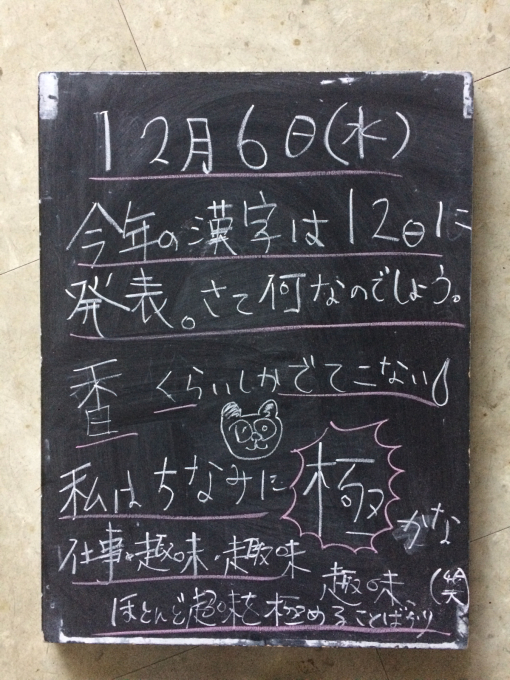 12月6日(水)
今年の漢字は12日に
発表。さて何なのでしょう。
香くらいしかでてこない
私はちなみに極かな
仕事や趣味・趣味
趣味(笑)
ほとんど趣味を極めることばかり